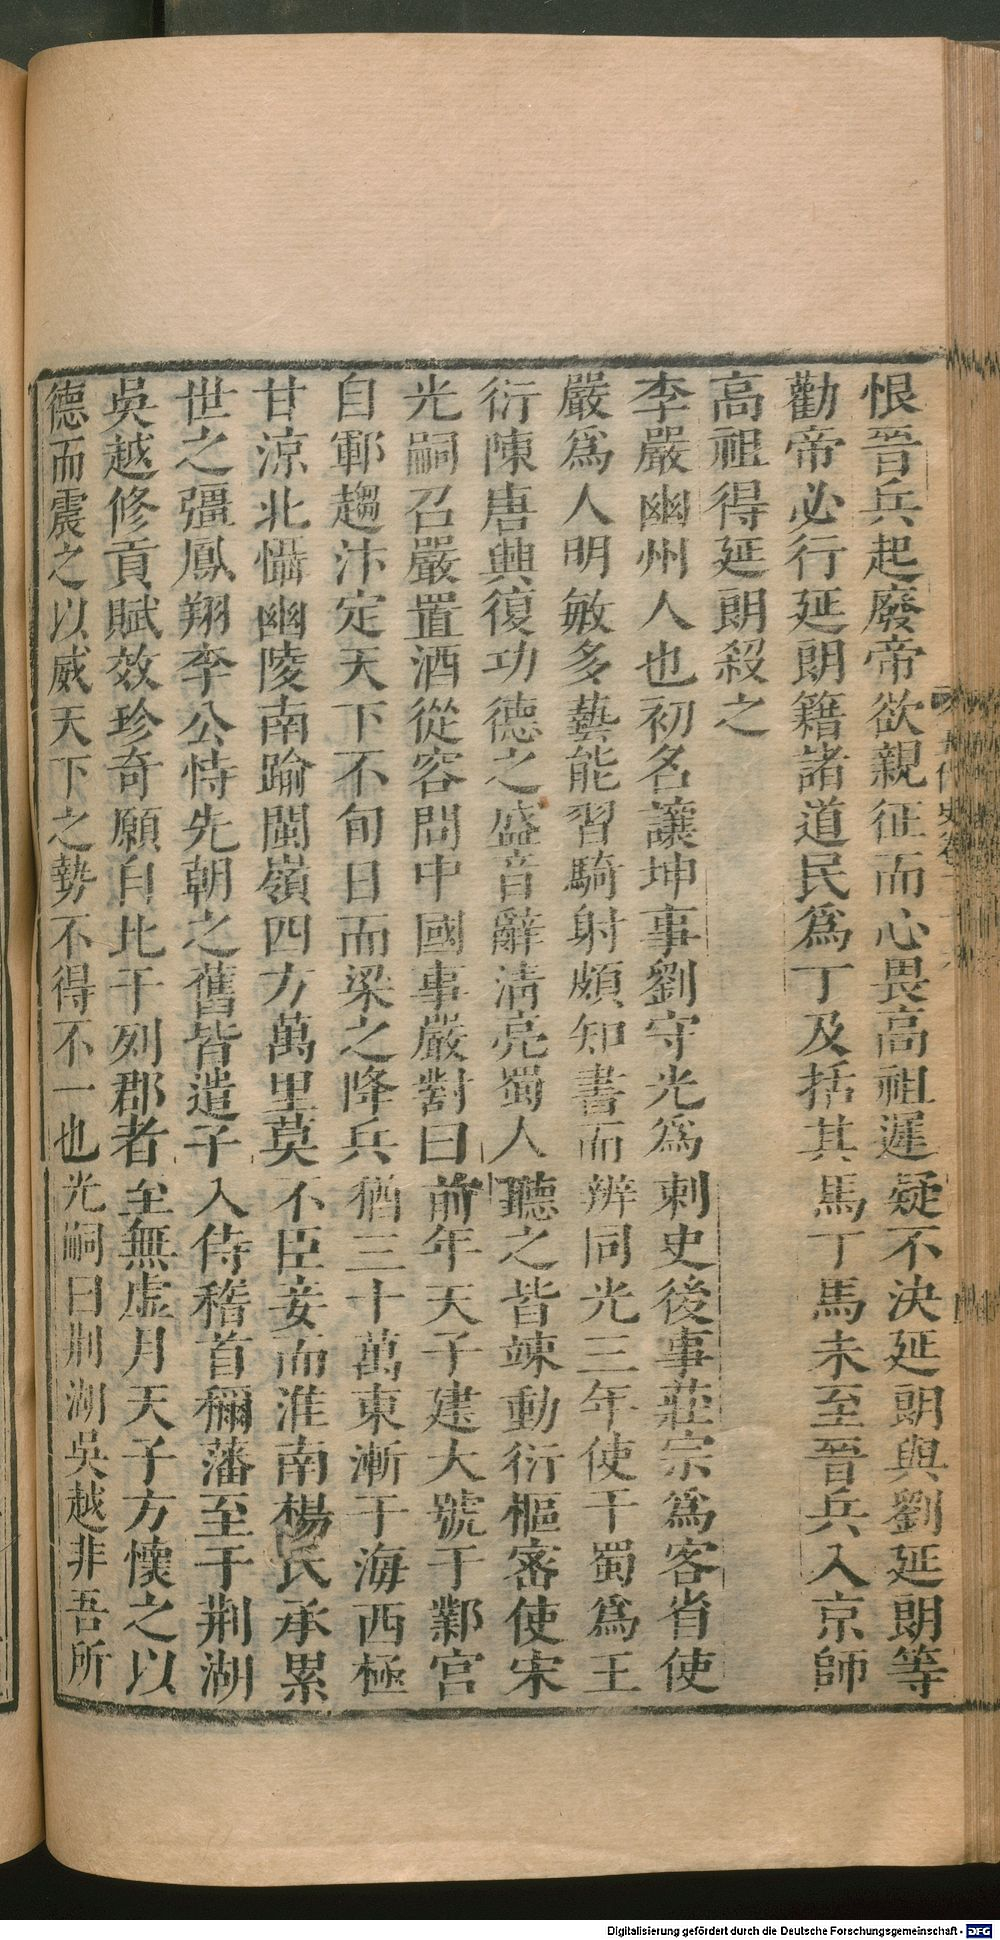 恨晉兵起廢帝欲親征而心畏高祖遲疑不決延朗與劉延朗等
勸帝必行延朗籍諸道民爲丁及括其馬丁馬未至晉兵入京師
高祖得延朗殺之
李嚴幽州人也初名讓坤事劉守光爲刺史後事莊宗爲客省使
嚴爲人明敏多藝能習騎射頗知書而辨同光三年使于蜀爲王
衍陳唐興復功德之盛音辭清亮蜀人聽之皆竦動衍樞密使宋
光嗣召嚴置酒從容問中國事嚴對曰前年天子建大號于鄴宮
自鄆趨汴定天下不旬日而梁之降兵猶三十萬東漸于海西極
甘涼北懾幽陵南踰閩嶺四方萬里莫不臣妾而淮南楊氏承累
世之彊鳳翔李公恃先朝之舊皆遣子入侍稽首稱藩至于荆湖
吳越修貢賦效珍奇願自比于列郡者至無虛月天子方懷之以
德而震之以威天下之勢不得不一也光嗣曰荆湖吳越非吾所
Digitalisierung gefördert durch die Deutsche Forschungsgemeinschaft - DFG